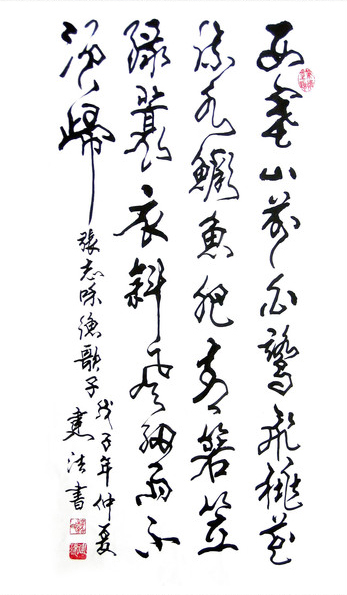 西塞山前白鷺飛桃花
流水鱖魚肥青箬笠
綠蓑衣斜風細雨不
須歸
張志和漁歌子戊子年仲夏
建法書